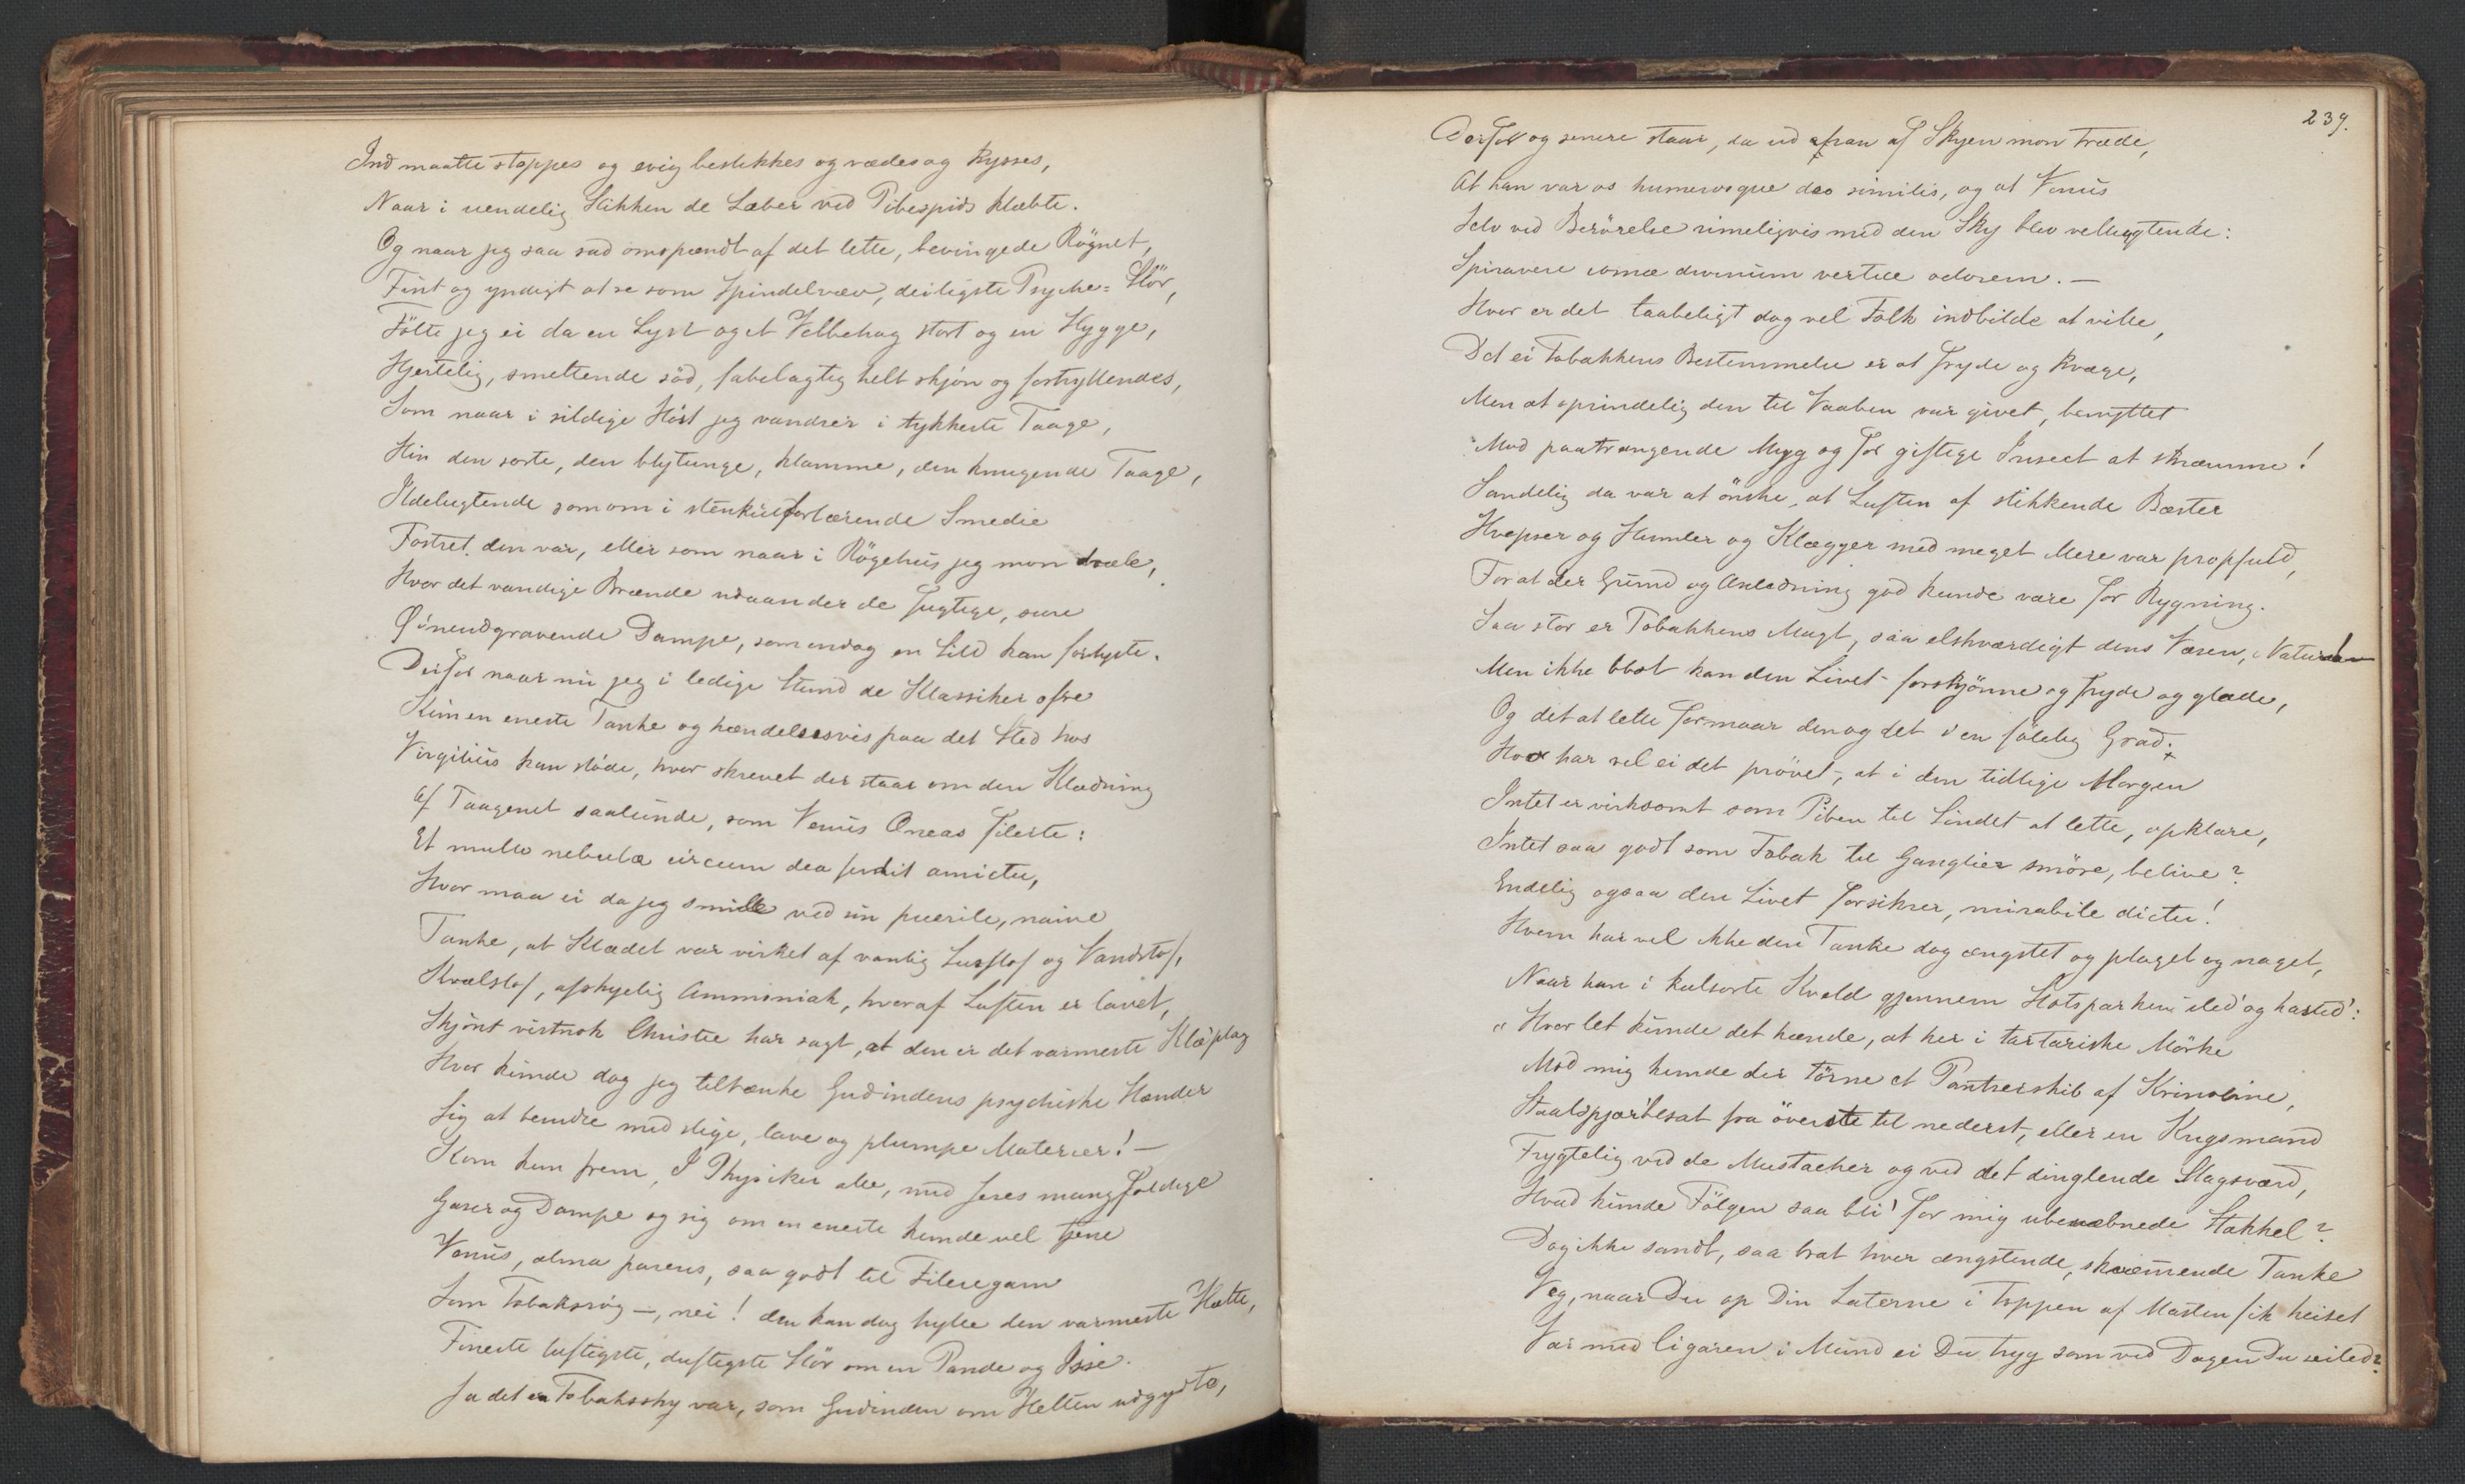 Ind maatte stoppes og evig bestikkes og vædes og kysses,
Naar i uendelig Stikken de Læber ved Pibespids klæbte.
Og naar jeg saa sad omspændt af det lette, bevingede Rögnet,
Fint og yndigt at se som Spindelvæv, deiligste Psyche-Slör,
Fölte jeg ei da en Lyst og et Velbehag stort og en Hygge,
Hjertelig, smeltende söd, fabelagtig helt skjön og fortryllendes,
Som naar i sildige Höst jeg vandrer i tykkeste Taage,
Hin den sorte, den blytunge, klamme, den knugende Taage,
Ildelugtende som om i stenkulfortærende Smedie
Fostret den var, eller som naar i Rögehus jeg mon dvæle,
Hvor det vandige Brænde udaander de fugtige, sure
Öinendgravende Dampe, som endog en Sild kan forlyste.
Derfor naar nu jeg i ledige Stund de Klassiker ofre
Kun en eneste Tanke og hændelsesvis paa det Sted hos
Virgilius kan stöde, hvor skrevet der staar om den Klædning
Af Taagenet saalunde, som Venus Æneas fileste:
Et multo nebulæ circum dea fudit amictu,
Hvor maa ei da jeg smile ved sin puerile, naive
Tanke, at Klædet var virket af vanlig Surstof og Vandstof,
Kvælstof, afskyelig Ammoniak, hvoraf Luften er lavet,
Skjönt vistnok Christie har sagt, at den er det varmeste Klæ'plag
Hvor kunde dog jeg tiltænke Gudindens psychiske Hænder
Sig at besudle med slige, lave og plumpe Materier! —
Kom kun frem, I Physiker alle, med Jeres mangfoldige
Gaser og Dampe og sig om en eneste kunde vel tjene
Venus, alma parens, saa godt til Fileregarn
Som Tobaksrög —, nei! den kan dog hylle den varmeste Hætte,
Fineste luftigste, duftigste Slör om en Pande og Isse.
Ja det en Tobakssky var, som Gudinden om Helten udgydte,
239.
Derfor og senere staar, da ud af han af Skyen mon træde,
At han var os humerosque deo similis, og at Venus
Selv ved Berörelse rimeligvis med den Sky blev vellugtende:
Spiravere comæ divinum vertice odorem. —
Hvor er det taabeligt dog vel Folk indbilde at ville,
Det ei Tobakkens Bestemmelse er at fryde og kvæge,
Men at oprindelig den til Vaaben var givet, benyttet
Mod paatrængende Myg og for giftige Insect at skræmme!
Sandelig da var at önske, at Luften af stikkende Bæster
Hvepser og Humler og Klægger med meget Mere var propfuld,
For at der Grund og Anledning god kunde være for Rygning.
Saa stor er Tobakkens Magt, saa elskværdigt dens Væsen, Naturen
Men ikke blot kan den Livet forskjönne og fryde og glæde,
Og det at lette formaar den og det i en fölelig Grad;
Hvo har vel ei det prövet, at i den tidlige Morgen
Intet er virksomt som Piben til Sindet at lette, opklare,
Intet saa godt som Tobak til Ganglier smöre, belive?
Endelig ogsaa den Livet forsikrer, mirabile dictu!
Hvem har vel ikke den Tanke dog ængstet og plaget og naget,
Naar han i kulsorte Kveld gjennem Slotsparken iled' og hasted':
"Hvor let kunde det hænde, at her i tartariske Mörke
Mod mig kunde der törne et Pantserskib af Krinoline,
Staalspjær'besat fra överste til nederst, eller en Krigsmand
Frygtelig ved de Mustacher og ved det dinglende Slagsværd,
Hvad kunde Fölgen saa bli' for mig ubevæbnede Stakkel?
Dog ikke sandt, saa brat hver ængstende, skræmende Tanke
Veg, naar Du op Din Laterne i Toppen af Masten fik heiset
Var med Cigaren i Mund ei Du tryg som ved Dagen Du seiled?